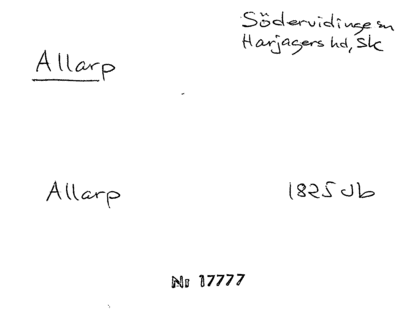 Södervidinge sn
Harjagers hd, Sk
Allarp
Allarp 1825 Jb
Nr 17777